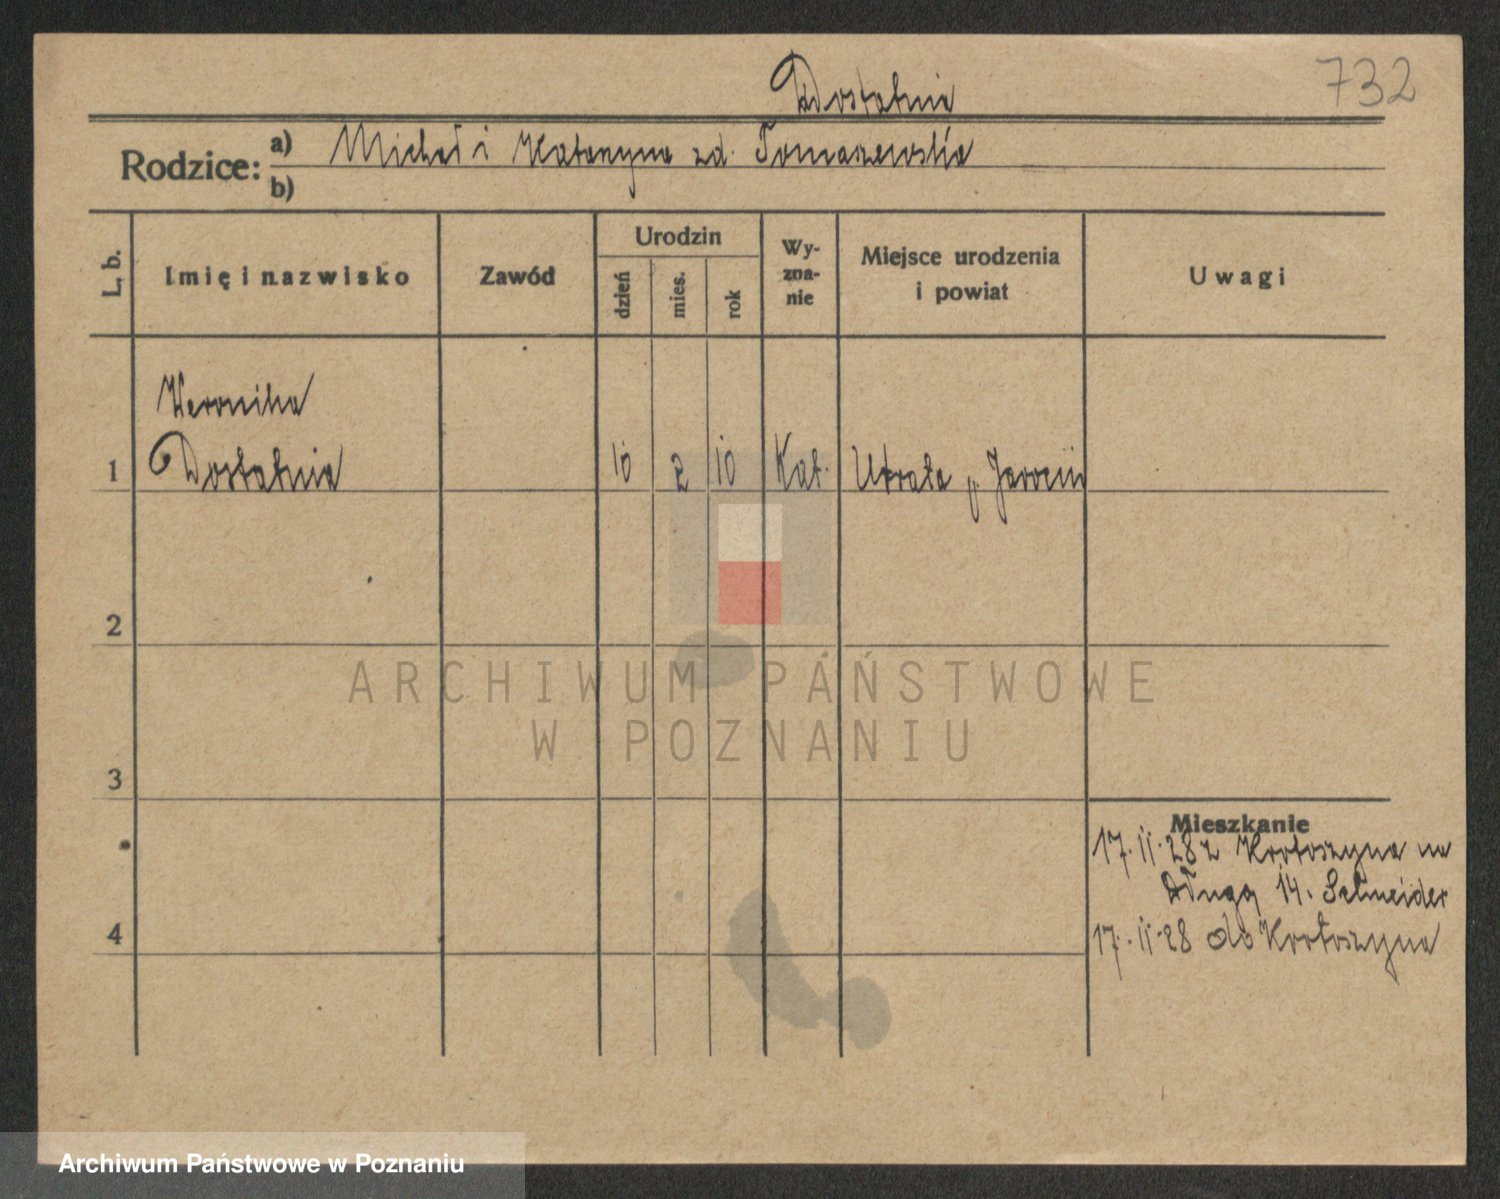 732
Dostatnia
Rodzice: a) Michał i Katarzyna zd. Tomaszewska
b)
L. b.
Imię i nazwisko
Zawód
Urodzin
dzień
mies.
rok
Wy-
zna-
nie
Miejsce urodzenia
i powiat
Uwagi
Weronika
1 Dostatnia 10 2 10 Kat. Utrata p. Jarocin
2
ARCHIWUM PAŃSTWOWE
W POZNANIU
3
Mieszkanie
17. 11. 28 z Krotoszyna na
Długą 14. Schneider
4
17. 11. 28 do Krotoszyna
Archiwum Państwowe w Poznaniu